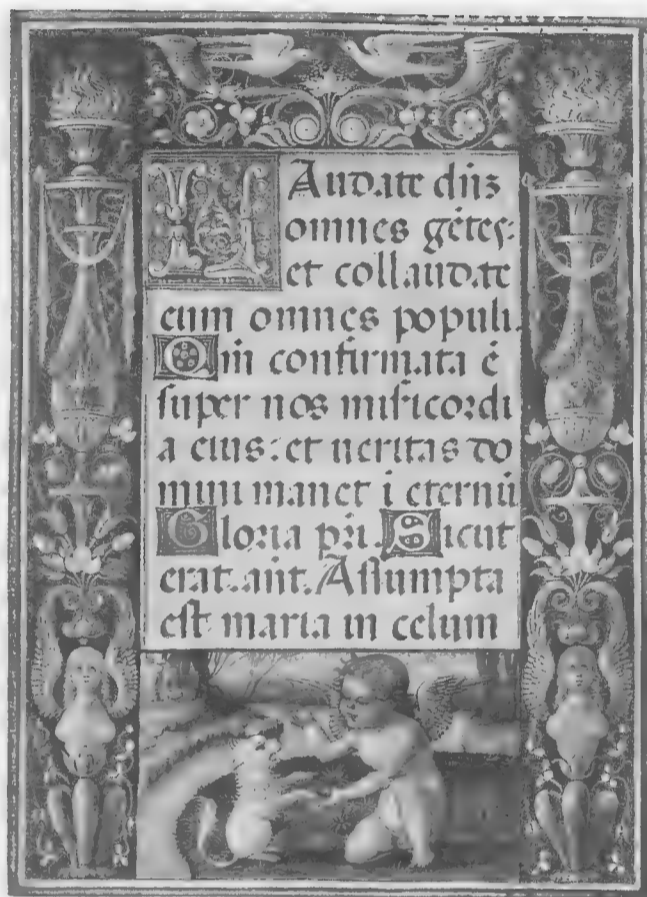 LAudate dn̄z
omnes gētes:
et collaudate
eum omnes populi.
Qm̄ confirmata ē
super nos mīsicordi
a eius: et ueritas do
mini manet ī eternū
Gloria pr̄i. Sicut
erat. ant. Assumpta
est maria in celum